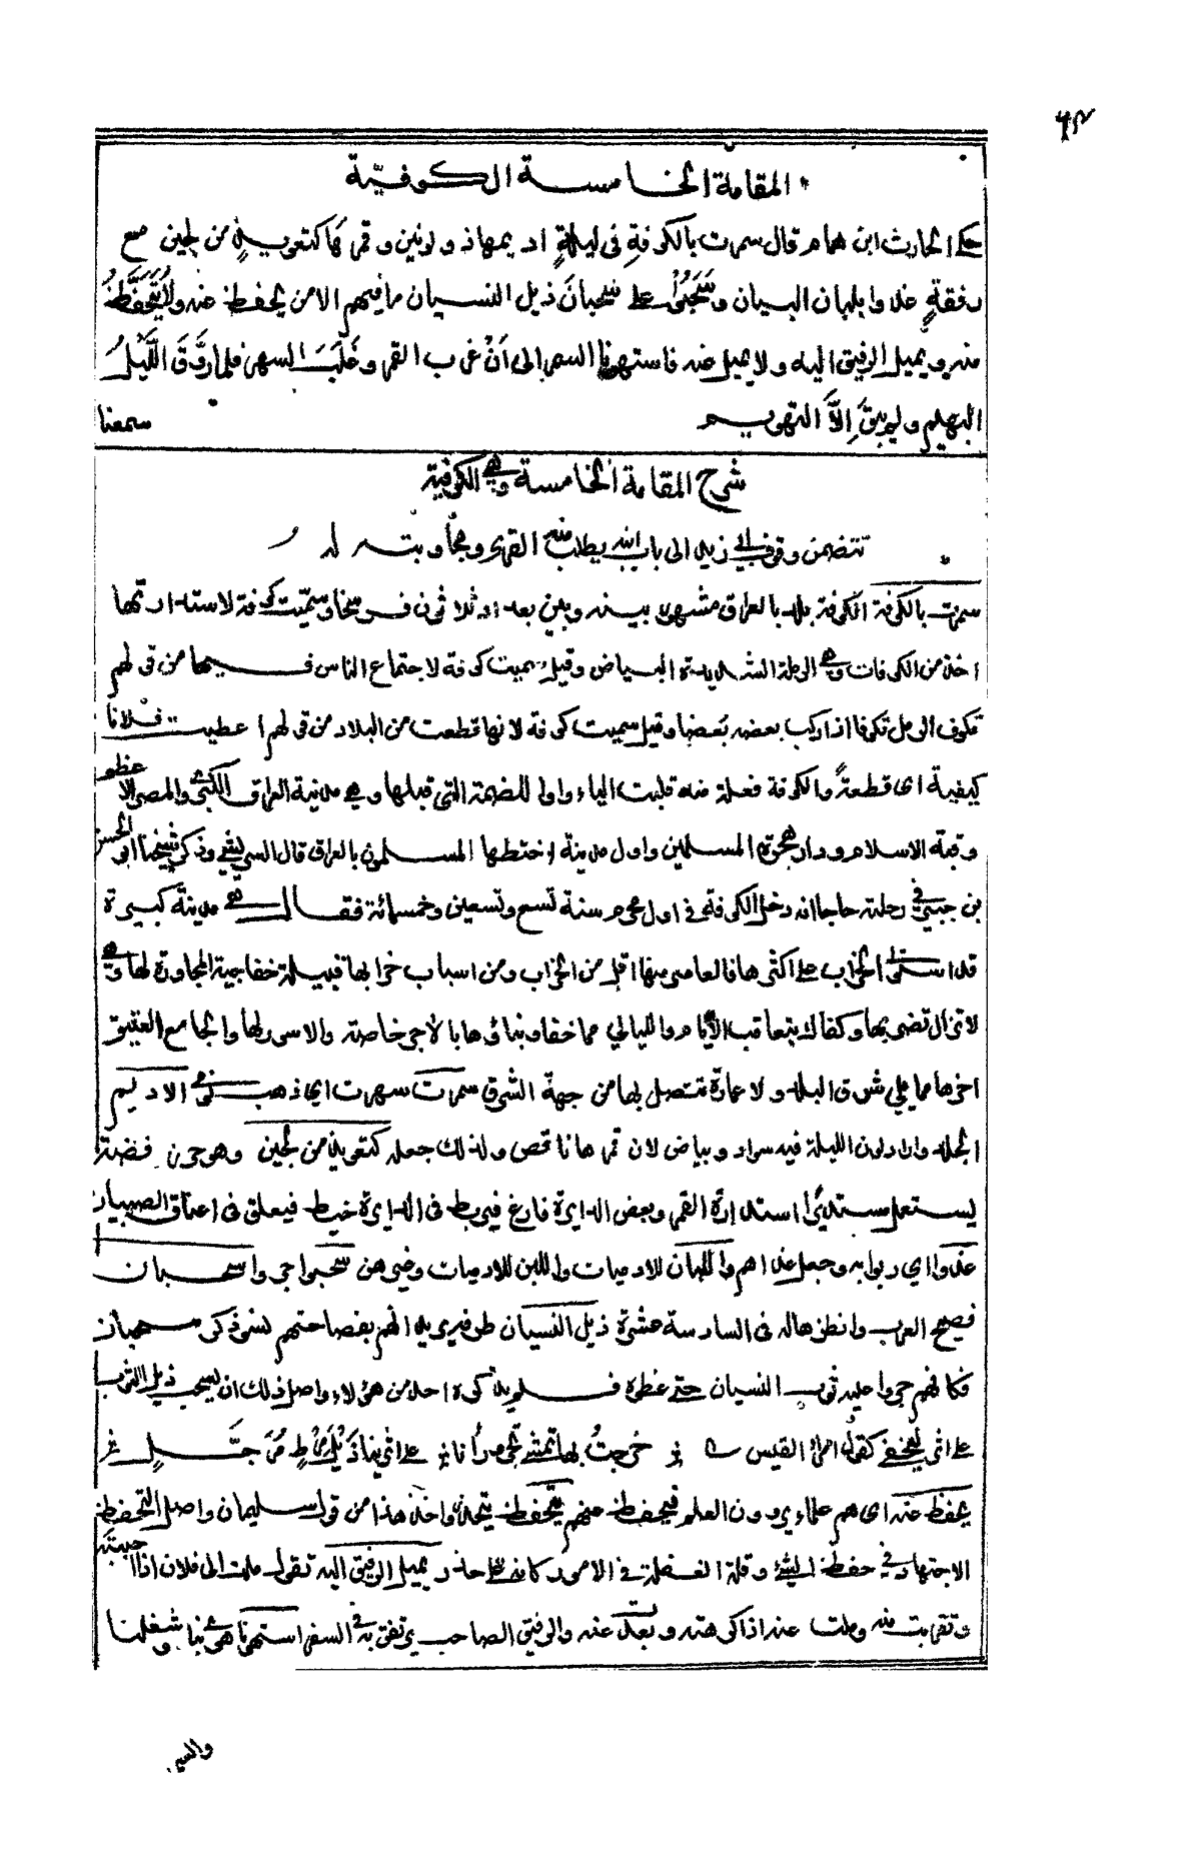 ٦٣
المقامة الخامسة الكوفية
حكى الحارث ابن همام قال سمرت بالكوفةِ في ليلةٍ اديمها ذو لونين وقمرها كتعويذٍ من لجين مع
رفقةٍ غذوا بلبان البيان وسَحَبُوْا على سحبانَ ذيل النسيان ما فيهم الا من يحفظ عنه ولا يُتَحَفَّظُ
منه ويميل الرفيق اليه ولا يميل عنه فاستهوانا السمر الى اَنْ غرب القمر وغَلَبَ السهر فلما روَّقَ اللَّيْلُ
البهيم ولم يبقَ اِلاَّ التهويم سمعنا
شرح المقامة الخامسة وهي الكوفية
تتضمن وقوف ابي زيد الى باب ابنه يطلب منه القرى ومجاوبته له
سمرت بالكوفة الكوفة بلد بالعراق مشهور بينه وبين بغداد ثلاثون فرسخا وسميّت كوفة لاستدارتها
اخذ من الكوفات وهي الرملة الشديدة البياض وقيل سميت كوفة لاجتماع الناس فيها من قولهم
تكوف الرمل تكوفا اذا ركب بعضه بَعضا وقيل سميت كوفة لانها قطعت من البلاد من قولهم اعطيت فلانا
كيفية اى قطعةً والكوفة فعلة منه قلبت الياء واوا للضمة التى قبلها وهي مدينة العراق الكبرى والمصر الاعظم
وقبة الاسلام ودار هجرة المسلمين واول مدينة اختطها المسلمون بالعراق قال الشريشي وذكر شيخنا ابو الحسن
بن جبير في رحلته حاجا انه دخل الكوفة في اول محرم سنة تسع وتسعين وخمسمائة فقال هي مدينة كبيرة
قد استولى الخراب على اكثرها فالعامر منها اقل من الخراب ومن اسباب خرابها قبيلة خفاجة المجاورة لها وهي
لا تزال تضر بها وكفاك بتعاقب الأيام والليالي مما خفا وبناؤها بالاجر خاصة والاسور لها والجامع العتيق
اخرها مما يلي شرق البلد ولا عمارة تتصل بها من جهة الشرق سمرت سهرت اى ذهب نومى الاديم
الجلد واراد لون الليلة فيه سواد وبياض لان قمرها ناقص ولذلك جعله كتعويذ من لجين وهو حرز فضة
يستعمل مستديرًا استدارة القمر وبعض الدايرة فارغ فيربط فى الدايرة خيط فيعلق فى اعناق الصبيان
غذوا اي ربوا به وجعل غذاهم واللبان للادميات واللبن للادميات وغيرهن سحبوا جروا سحبان
فصيح العرب وانظر حاله فى السادسة عشرة ذيل النسيان طرفه يريد انهم بفصاحتهم نسى ذكر سحبان
فكانهم جروا عليه ثوب النسيان حتى غطوه فلم يذكره احد من هؤلاء واصل ذلك ان يسحب ذيل الثوب
على اثر ليخفى كقول امرئ القيس خرجتُ بها تمشي تجر وراءنا على اثرينا ذَيْلَ مِرْطٍ مُرَحَّلِ
يحفظ عنه اى هم علماء يروون العلم فيحفظ عنهم يتحفظ يتحذر واخذ هذا من قول سليمان واصل التحفظ
الاجتهاد في حفظ الشئ وقلة الغفلة في الامور كانه على حذر ويميل الرفيق اليه تقول ملت الى فلان اذا احببته
وتقربت منه وملت عنه اذا كرهته وبعدت عنه والرفيق الصاحب يرتفق به في السفر استهوانا هوى بنا وشغلنا
والسمر